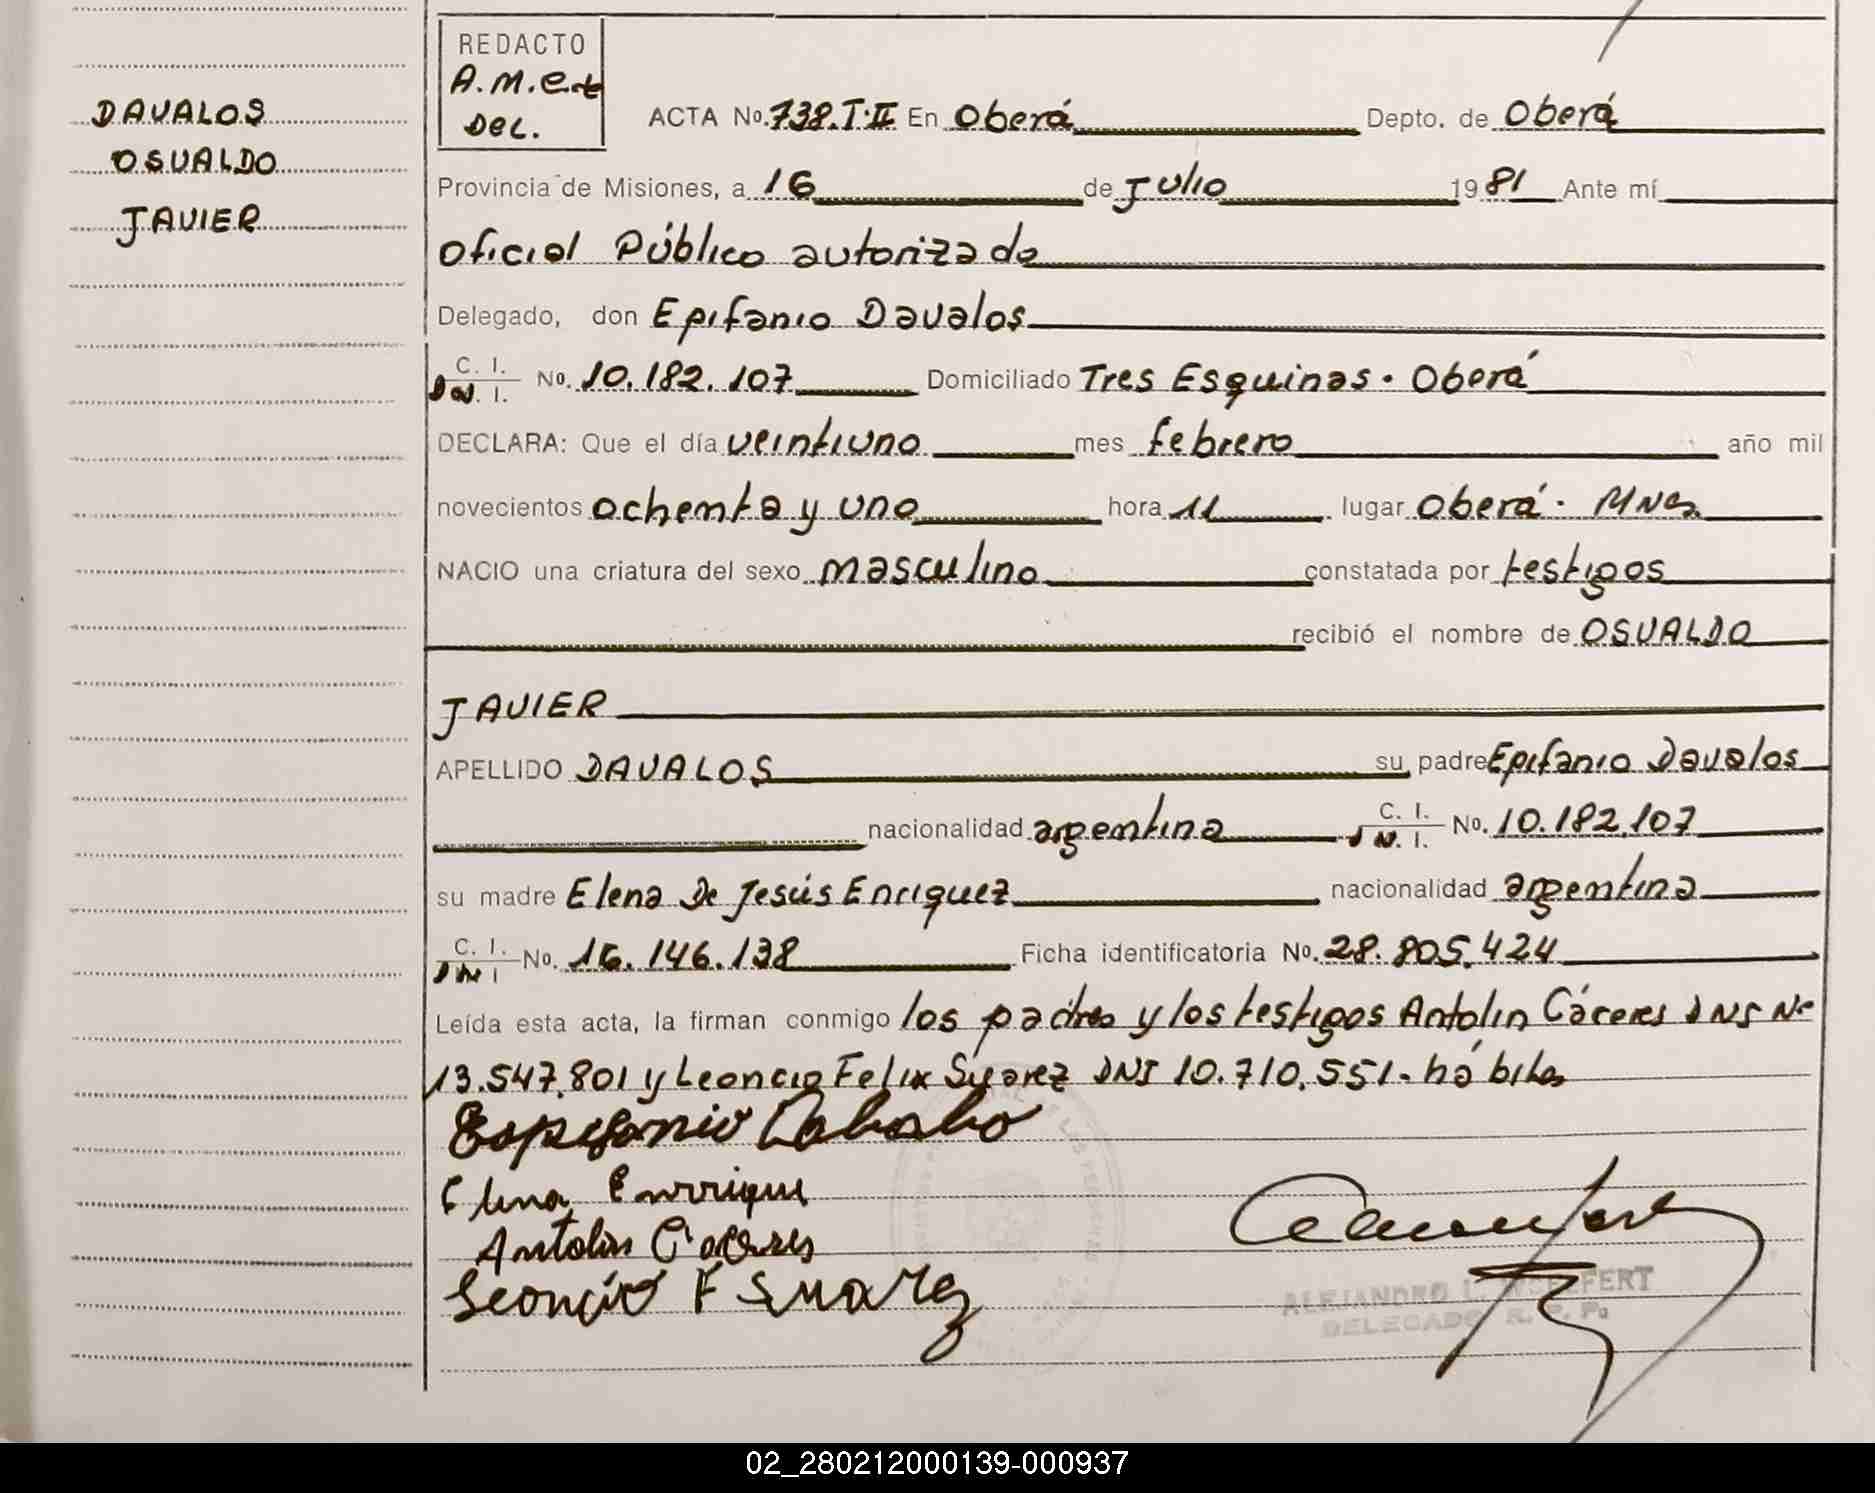 DAVALOS
OSVALDO
JAVIER
REDACTO
A.M.
DEL.
ACTA No. 738.T.II En Oberá Depto. de Oberá
Provincia de Misiones, a 16 de Julio 1981 Ante mí
Oficial Público autorizado
Delegado, don Epifanio Davalos
C. I. D N. I. No. 10.182.107 Domiciliado Tres Esquinas. Oberá
DECLARA: Que el día veintiuno mes febrero año mil
novecientos ochenta y uno hora 11 lugar Oberá. Mnes.
NACIO una criatura del sexo masculino constatada por testigos
recibió el nombre de OSVALDO
JAVIER
APELLIDO DAVALOS su padre Epifanio Davalos
nacionalidad argentina C. I. D N. I. No. 10.182.107
su madre Elena De Jesús Enriquez nacionalidad argentina
C. I. D N I No. 16.146.138 Ficha identificatoria No. 28.805.424
Leída esta acta, la firman conmigo los padres y los testigos Antolin Cáceres DNI Nº
13.547.801 y Leoncio Felix Suarez DNI 10.710.551. hábiles
Elena Enrrique
Antolin Caceres
Leoncio F Suarez
ALEJANDRO L.
DELEGADO R. P. P.
02_280212000139-000937